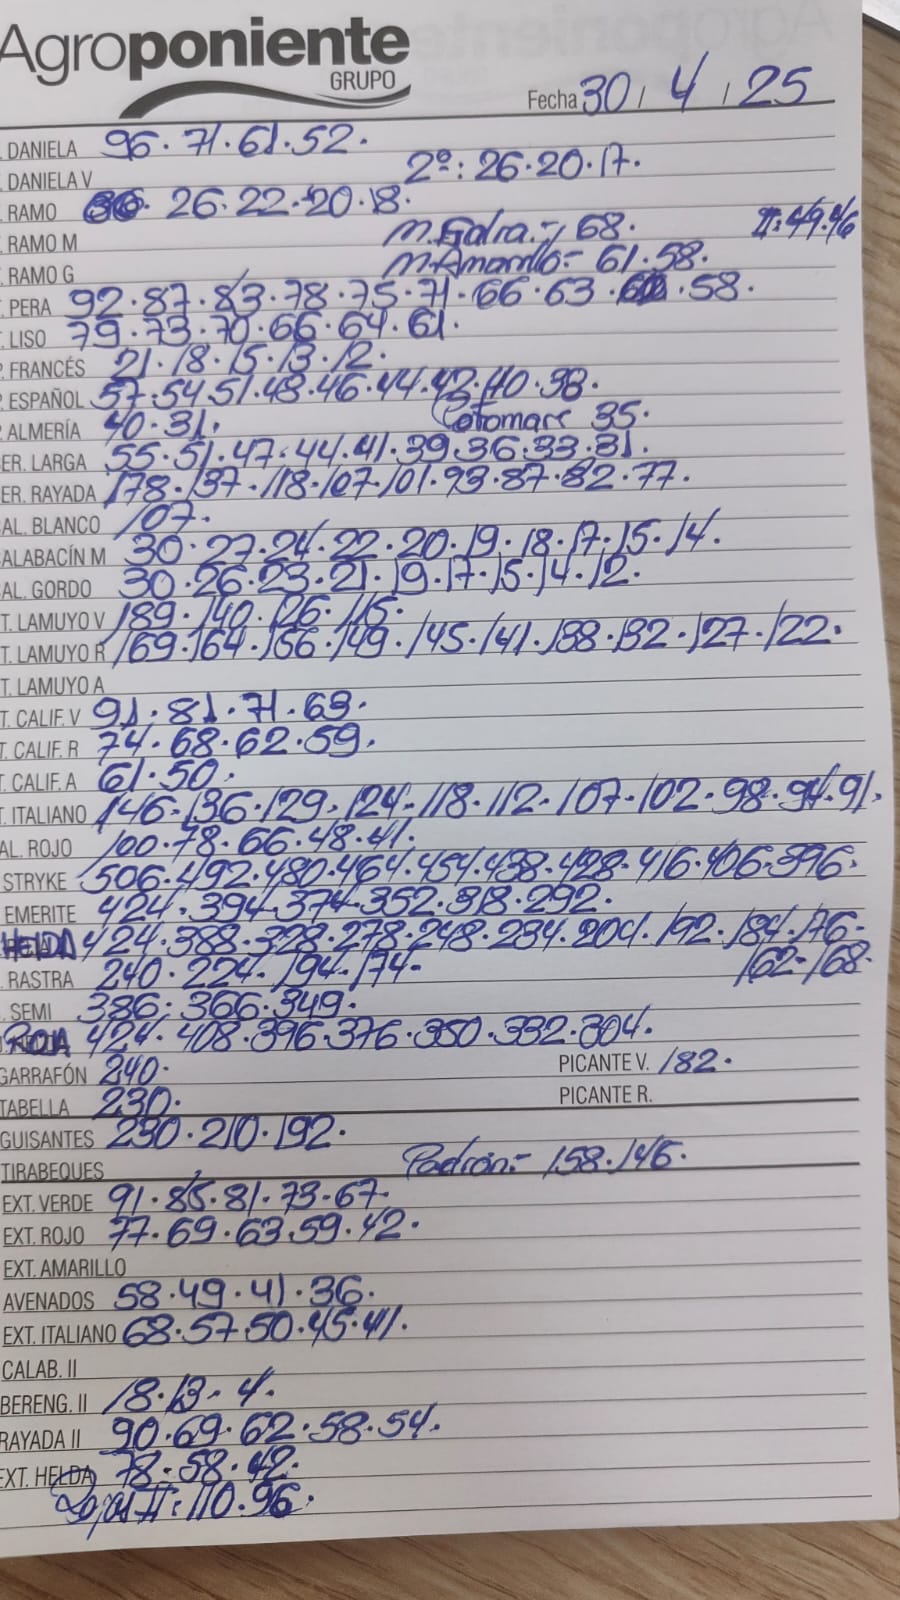 Agroponiente
GRUPO
Fecha 30 / 4 / 25
. DANIELA 96 · 71 · 61 · 52 ·
. DANIELA V 2º : 26 · 20 · 17 ·
. RAMO 26 · 22 · 20 · 18 ·
. RAMO M 68 · II : 49 · 46
. RAMO G M. Amarillo = 61 · 58 ·
. PERA 92 · 87 · 83 · 78 · 75 · 71 · 66 · 63 · 58 ·
. LISO 79 · 73 · 70 · 66 · 64 · 61 ·
P. FRANCÉS 21 · 18 · 15 · 13 · 12 ·
P. ESPAÑOL 57 · 54 · 51 · 48 · 46 · 44 · 42 · 40 · 38 ·
P. ALMERÍA 40 · 31 · 35 ·
BER. LARGA 55 · 51 · 47 · 44 · 41 · 39 · 36 · 33 · 31 ·
BER. RAYADA 178 · 137 · 118 · 107 · 101 · 93 · 87 · 82 · 77 ·
CAL. BLANCO 107 ·
CALABACÍN M 30 · 27 · 24 · 22 · 20 · 19 · 18 · 17 · 15 · 14 ·
CAL. GORDO 30 · 26 · 23 · 21 · 19 · 17 · 15 · 14 · 12 ·
T. LAMUYO V 189 · 140 · 126 · 115 ·
T. LAMUYO R 169 · 164 · 156 · 149 · 145 · 141 · 138 · 132 · 127 · 122 ·
T. LAMUYO A
T. CALIF. V 91 · 81 · 71 · 63 ·
T. CALIF. R 74 · 68 · 62 · 59 ·
T. CALIF. A 61 · 50 ·
T. ITALIANO 146 · 136 · 129 · 124 · 118 · 112 · 107 · 102 · 98 · 94 · 91 ·
AL. ROJO 100 · 78 · 66 · 48 · 41 ·
STRYKE 506 · 492 · 480 · 464 · 454 · 438 · 428 · 416 · 406 · 396 ·
EMERITE 424 · 394 · 374 · 352 · 318 · 292 ·
HELDA 424 · 388 · 328 · 278 · 248 · 234 · 204 · 192 · 184 · 176 ·
162 · 168 ·
. RASTRA 240 · 224 · 194 · 174 ·
. SEMI 386 · 366 · 349 ·
ROJA 424 · 408 · 396 · 376 · 350 · 332 · 304 ·
GARRAFÓN 240 · PICANTE V. 182 ·
TABELLA 230 · PICANTE R.
GUISANTES 230 · 210 · 192 ·
TIRABEQUES Padrón = 158 · 146 ·
EXT. VERDE 91 · 85 · 81 · 73 · 67 ·
EXT. ROJO 77 · 69 · 63 · 59 · 42 ·
EXT. AMARILLO
AVENADOS 58 · 49 · 41 · 36 ·
EXT. ITALIANO 68 · 57 · 50 · 45 · 41 ·
CALAB. II
BERENG. II 18 · 13 · 4 ·
RAYADA II 90 · 69 · 62 · 58 · 54 ·
EXT. HELDA 78 · 58 · 42 ·
II : 110 · 96 ·